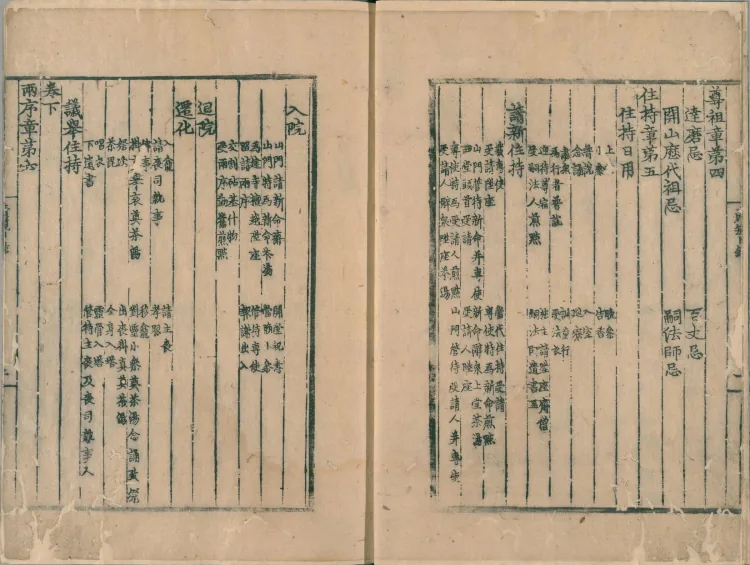 尊祖章第四
達磨忌 百丈忌
開山歷代祖忌 嗣法師忌
住持章第五
住持日用
上堂 晚參
小參 告香
普說 入室
念誦 巡寮
肅衆 訓童行
為行者普說 受法衣
迎待尊宿 施主請陞座齋僧
受嗣法人煎點 嗣法師遺書至
請新住持
發專使 當代住持受請
受請陞座 專使特為新命煎點
山門管待新命并專使 新命辭衆上堂茶湯
西堂頭首受請 受請人陞座
專使特為受請人煎點 山門管待受請人并專使
受請人辭衆陞座茶湯
入院
山門請新命齋 開堂祝壽
山門特為新命茶湯 當晚小參
為建寺檀越陞座 管待專使
留請兩序 報謝出入
交割砧基什物
受兩序勤舊煎點
退院
遷化
入龕 請主喪
請喪司執事 孝服
佛事 移龕
掛真舉哀奠茶湯 對靈小參奠茶湯念誦致祭
祭次 出喪掛真奠茶湯
荼毘 全身入塔
唱衣 靈骨入塔
下遺書 管待主喪及喪司執事人
議舉住持
卷下
兩序章第六